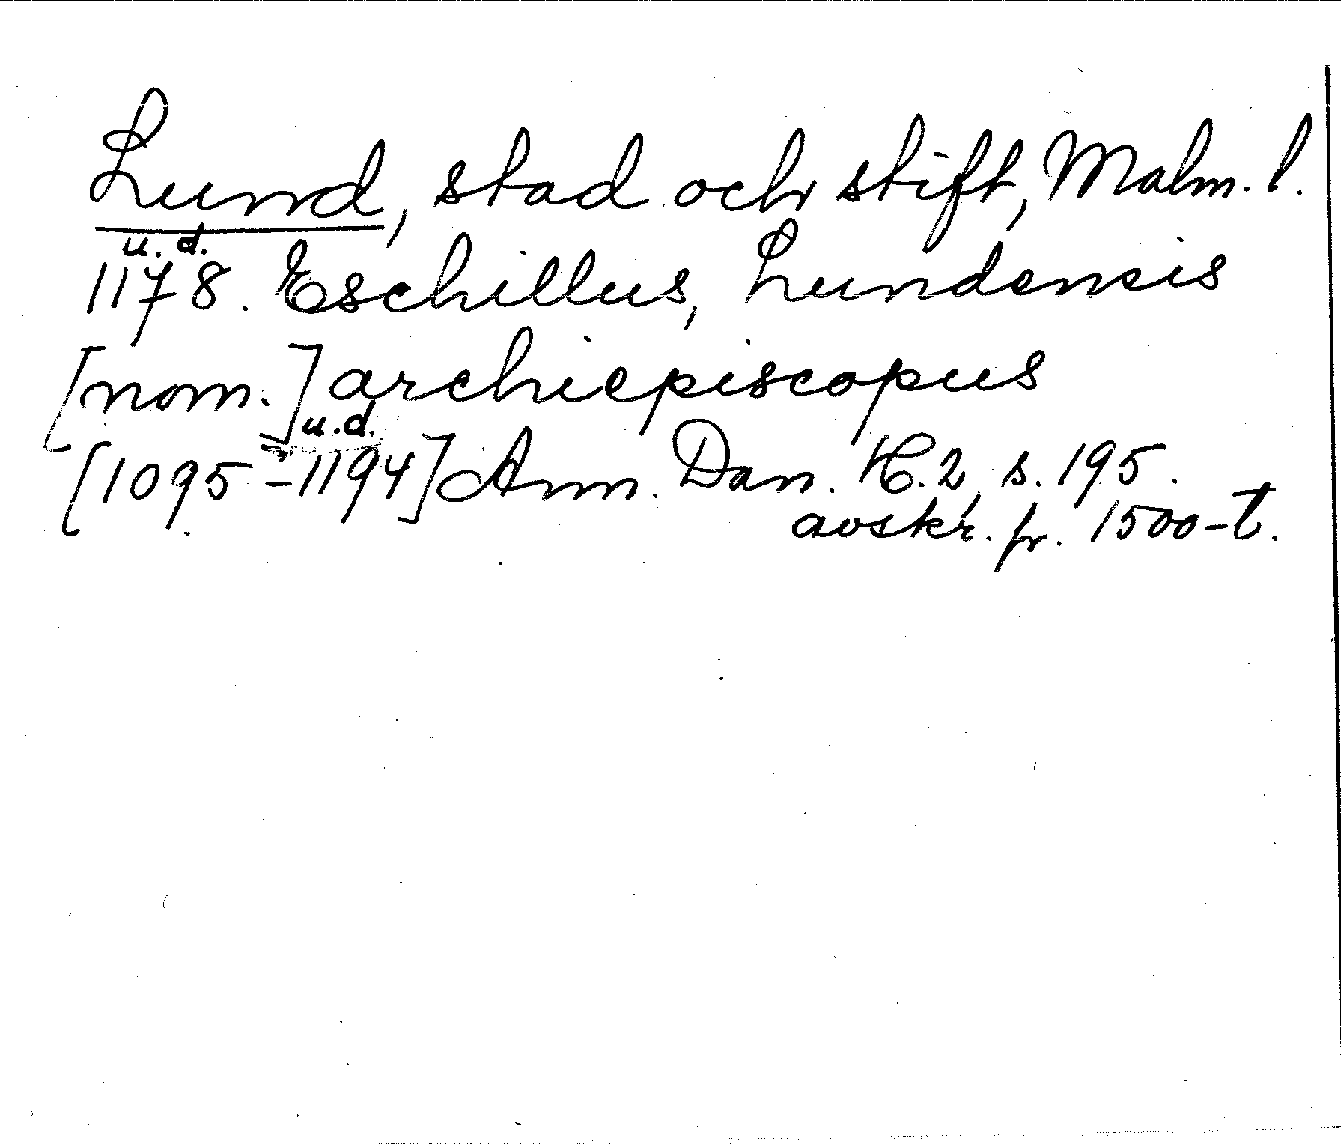 Lund, stad och stift, Malm. l.
u. d.
1178. Eschillus, Lundensis
[nom.] archiepiscopus
u.d.
[1095-1194] Ann. Dan. H.2, s. 195.
avskr. fr. 1500-t.